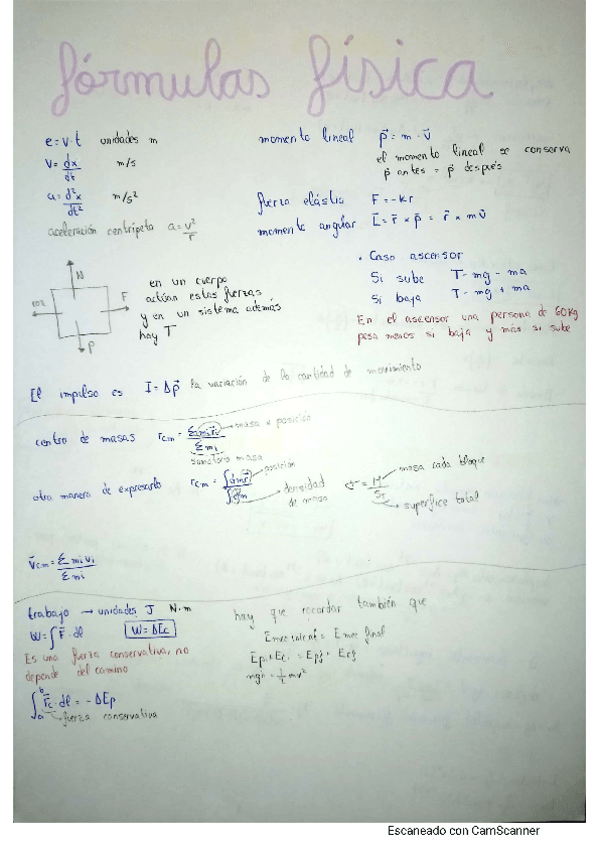 fórmulas física
e = v · t unidades m
v = dx/dt m/s
a = d²x/dt² m/s²
aceleración centrípeta a = v²/r
momento lineal p⃗ = m · v⃗
el momento lineal se conserva
p⃗ antes = p⃗ después
fuerza elástic F = -kr
momento angular L⃗ = r⃗ × p⃗ = r⃗ × mv⃗
N
F
roz
P
en un cuerpo
actúan estas fuerzas
y en un sistema además
hay T
· Caso ascensor
Si sube T - mg - ma
Si baja T - mg + ma
En el ascensor una persona de 60kg
pesa menos si baja y más si sube
El impulso es I = Δp⃗ la variación de la cantidad de movimiento
centro de masas rcm = Σmiri/Σmi
masa x posición
sumatorio masa
otra manera de expresarlo rcm = ∫dmr⃗/∫dm
posición
densidad
de masa
σ = M/ST
masa cada bloque
superfice total
v⃗cm = Σmivi/Σmi
trabajo → unidades J N·m
W = ∫F⃗ · dl W = ΔEc
Es una fuerza conservativa, no
depende del camino
∫ab F⃗c · dl = -ΔEp
fuerza conservativa
hay que recordar también que
Emec inicial = Emec final
Epi + Eci = Epf + Ecf
mgh = ½mv²
Escaneado con CamScanner